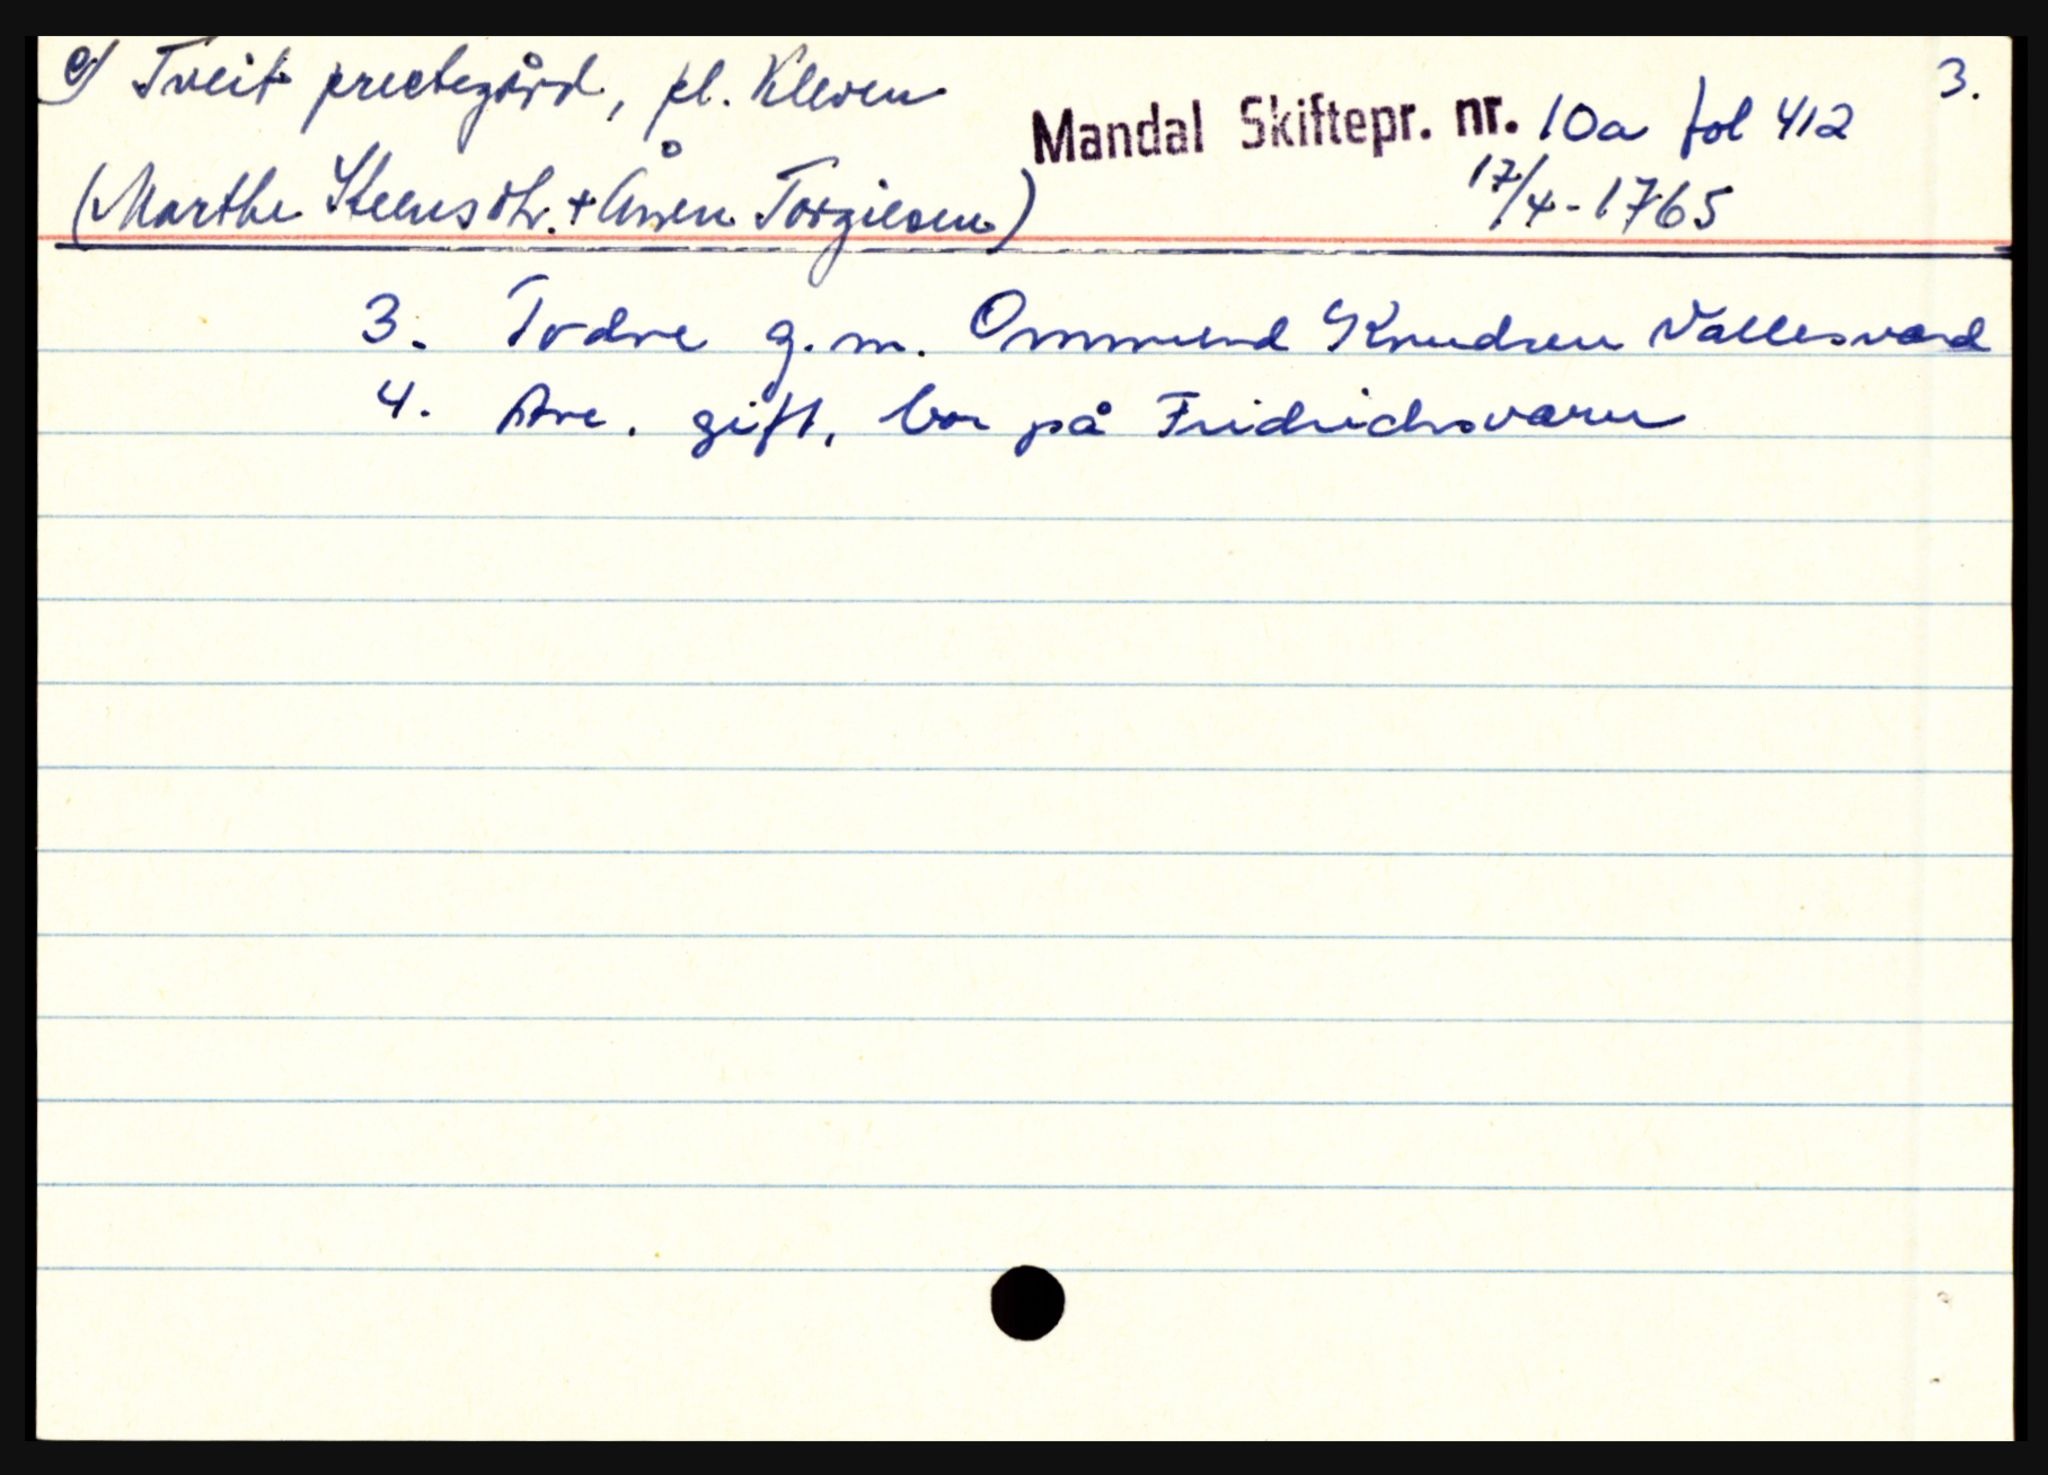 e) Tveit prestegård, pl. Kleven
3.
Mandal Skiftepr. nr. 10a fol 412
(Marthe Steensdtr. + Åven Torgiesen)
17/4-1765
3. Todne g.m. Ommund Knudsen Vallesværd
4. Are. gift, bor på Fridrichsværn